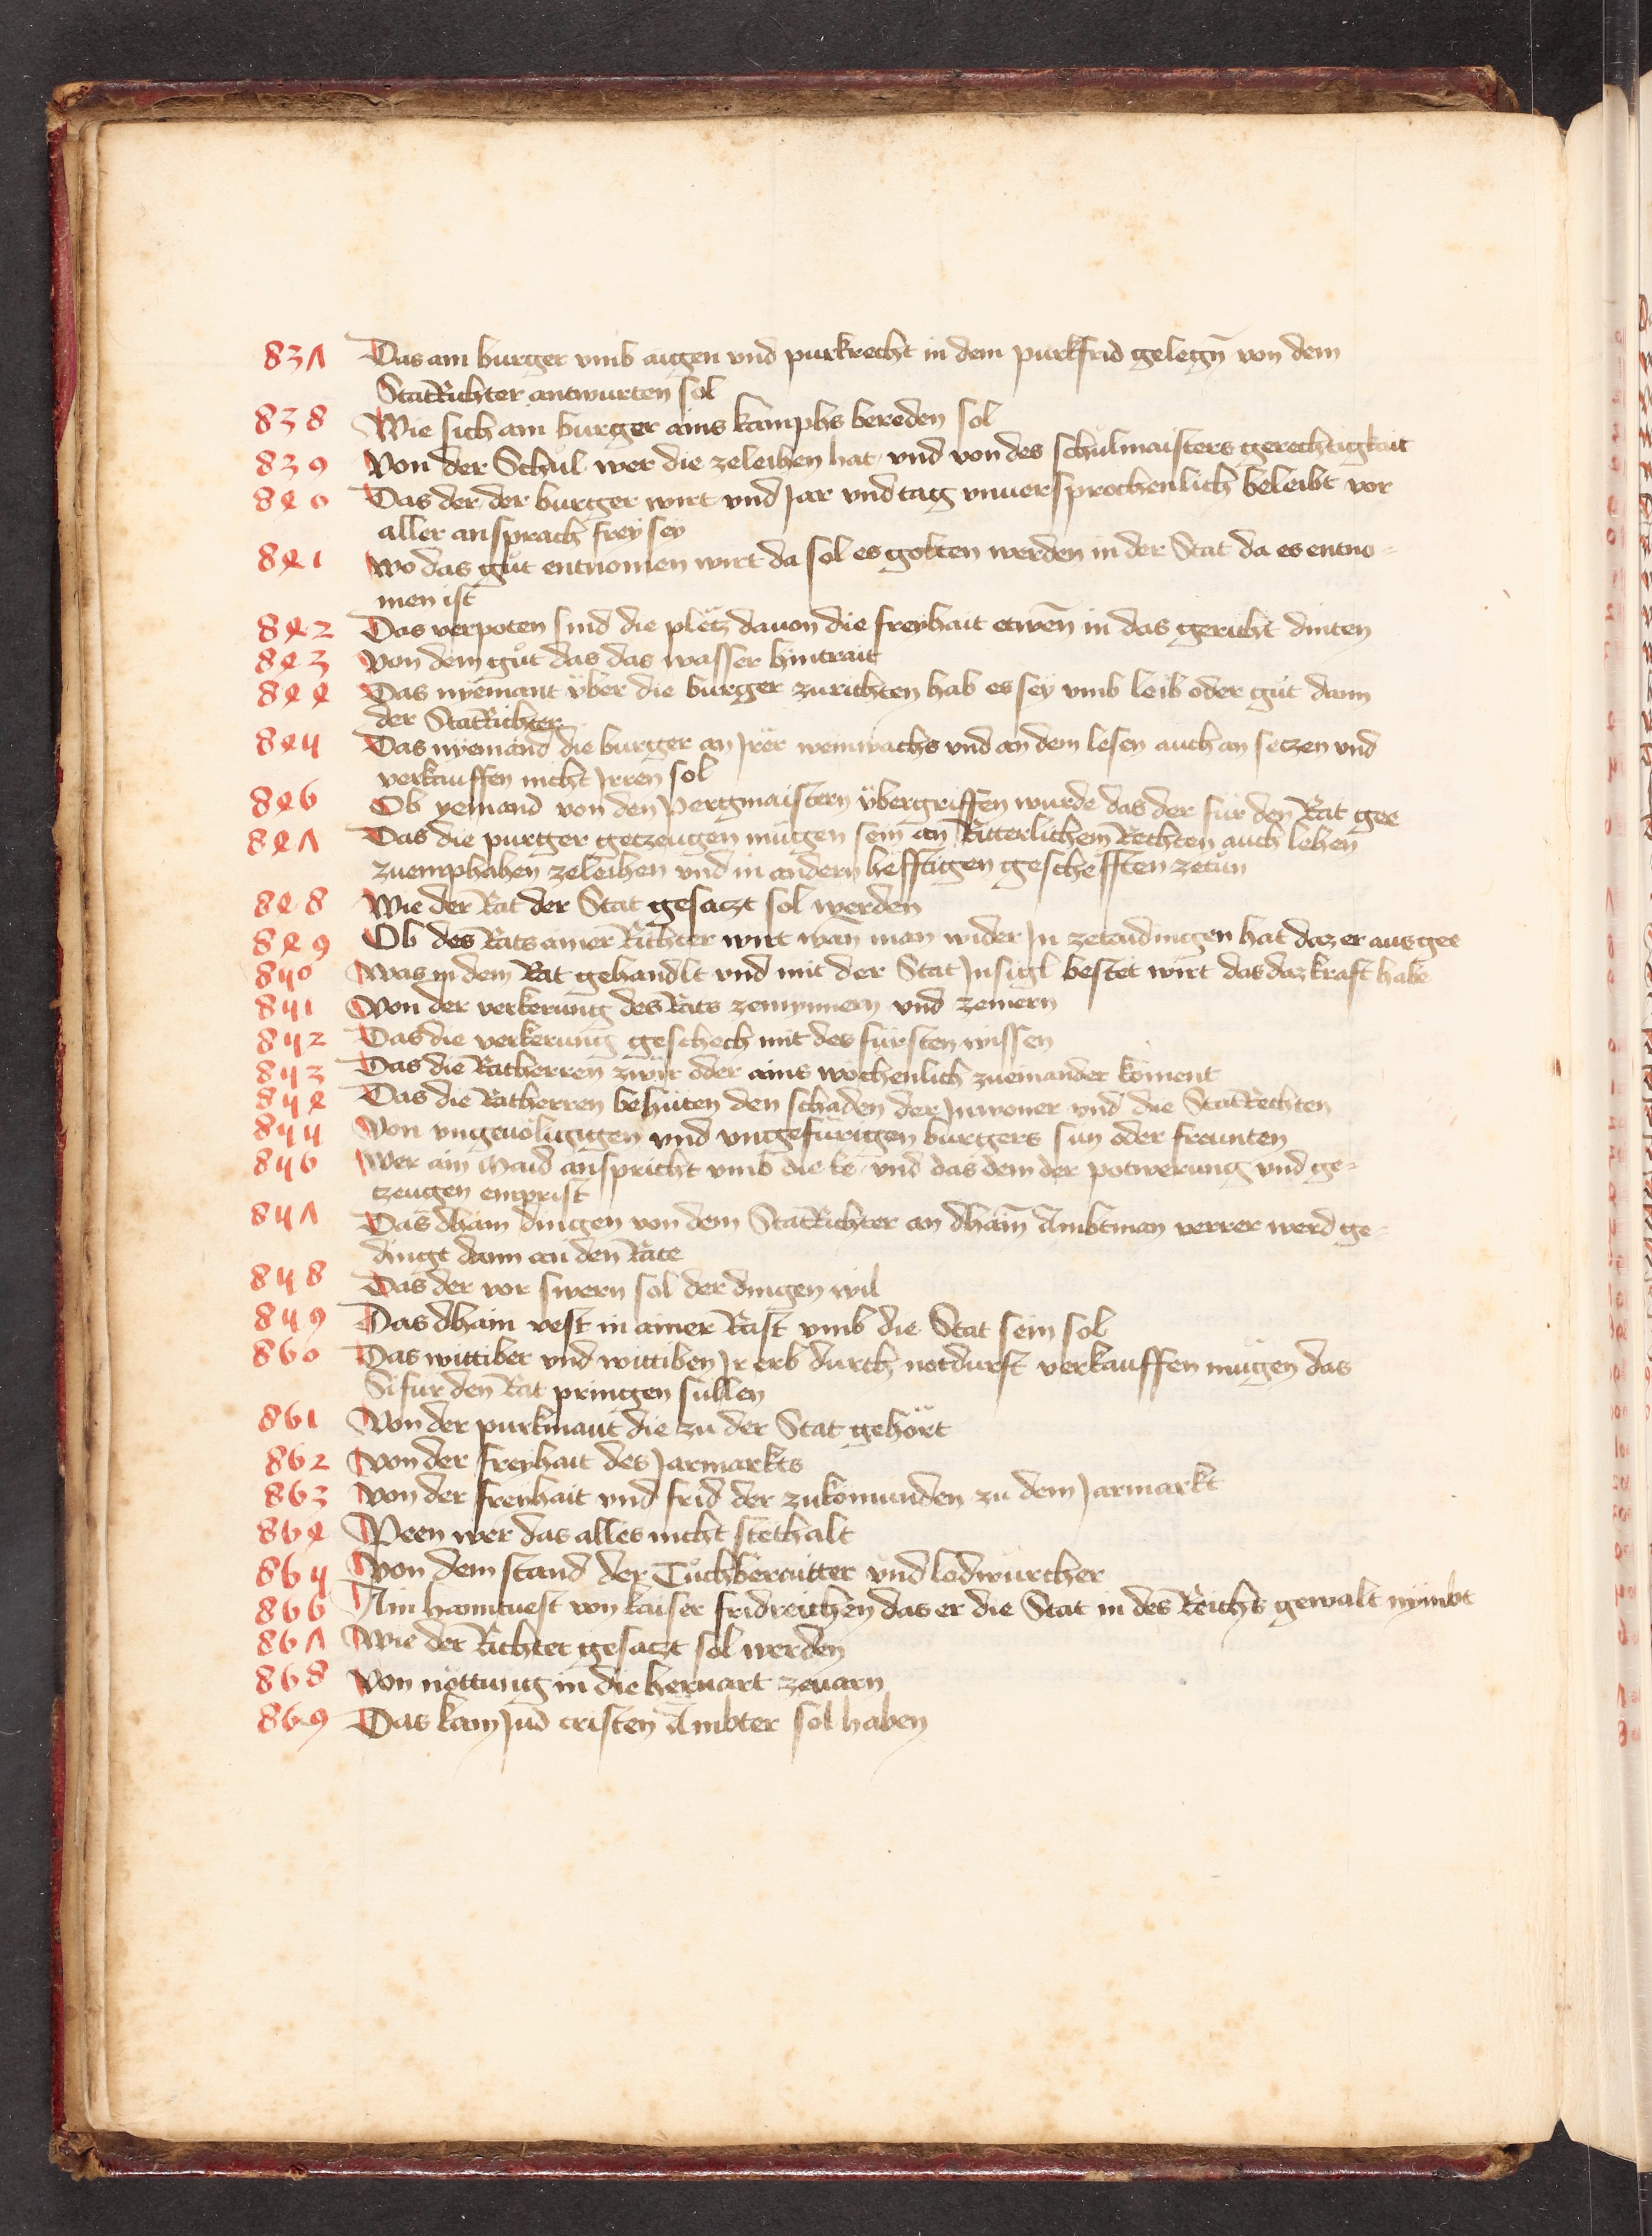 837 Das ain burger vmb aigen vnd purkrecht in dem purkfrid gelegñ von dem
StatRichter antwurten sol
838 Wie sich ain burger ains kamphs bereden sol
839 Von der Schul wer die zeleihen hat vnd von des schulmaisters gerechtigkait
840 Das der der burger wirt vnd Jar vnd tag vnuersprochenlich beleibt vor
aller ansprach frey sey
841 wo das gůt entnomen wirt da sol es golten werden in der Stat da es entno-
men ist
842 Das verpoten sind die pletz dauon die freyhait etweñ in das gericht dinten
843 von dem gůt das das wasser hintrait
844 Das nyemant über die burger zurichten hab es sey vmb leib oder gut dann
der StatRichter
845 Das nyemand die burger an Jrer weinwachs vnd an dem lesen auch an setzen vnd
verkauffen nicht Jrren sol
846 Ob yemand von den Pergmaistern übergriffen wurde das der für den Rat gee
847 Das die purger getzeugen mugen sein an Ritterlichem Rechten auch lehen
zuemphahen zeleihen vnd in andern hefftigen geschefften zetun
848 Wie der Rat der Stat gesaczt sol werden
849 Ob des Rats ainer Richter wirt wañ man wider Jn zetaidingen hat daz er aus gee
850 Was in dem Rat gehandlt vnd mit der Stat Jnsigl bestet wirt das daz kraft habe
851 Von der verkerung des Rats zemynnern vnd zemern
852 Das die verkerung geschech mit des fürsten wissen
853 Das die Ratherren zwir oder ains wöchenlich zueinander koment
854 Das die Ratherren behüten den schaden der Jnwoner vnd die StatRechten
855 Von vngeuölligigen vnd vngefürigen burgers sün oder freunten
856 Wer ain Maid anspricht vmb die ke vnd das dem der potwerung vnd ge-
tzeugen enprist
857 Das dhain dingen von dem StatRichter an dhain Ambtman verrer werd ge-
dingt dann an den Rate
858 Das der vor swern sol der dingen wil
859 Das dhain vest in ainer Rast vmb die Stat sein sol
860 Das wittiber vnd wittiben Jr erb durch notdurft verkauffen mugen das
Si für den Rat pringen sullen
861 Von der purkmaut die zu der Stat gehört
862 Von der freyhait des Jarmarkts
863 Von der freyhait vnd frid der zukomunden zu dem Jarmarkt
864 Peen wer das alles nicht stethalt
865 Von dem stand der Tuchberaitter vnd lodwürcher
866 Ain hanntuest von kaiser fridreichen das er die Stat in des Reichs gewalt nymbt
867 Wie der Richter gesaczt sol werden
868 Von nöttung in die heruart zeuarn
869 Das kain Jud cristen Ambter sol haben